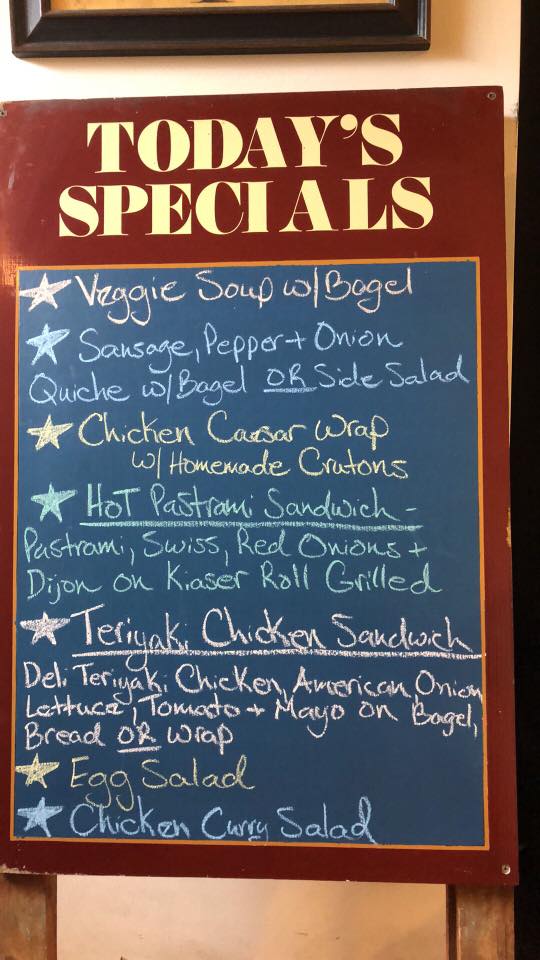 TODAY'S
SPECIALS
Veggie Soup w/Bagel
Sausage, Pepper + Onion
Quiche w/Bagel OR Side Salad
Chicken Caesar Wrap
w/ Homemade Crutons
HOT Pastrami Sandwich -
Pastrami, Swiss, Red Onions +
Dijon on Kiaser Roll Grilled
Teriyaki Chicken Sandwich
Deli Teriyaki Chicken, American, Onion
Lettuce, Tomato + Mayo on Bagel,
Bread OR Wrap
Egg Salad
Chicken Curry Salad